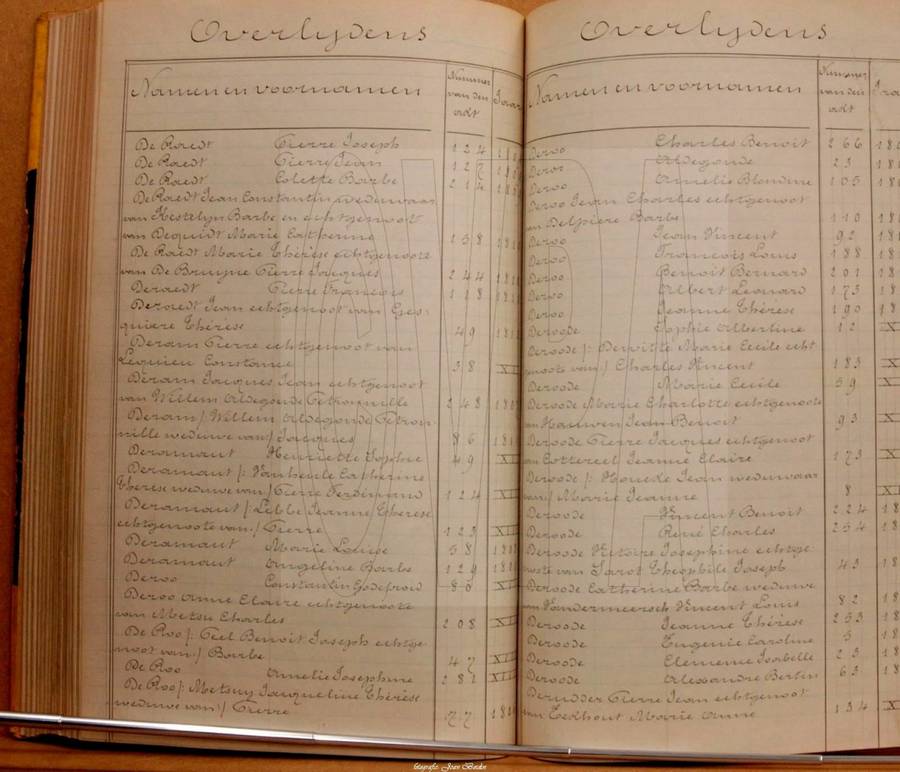 Overlydens
Namen en voornamen Nummer van den akt Jaar
De Raedt Pierre Joseph 124
De Raedt Pierre Jean 127
De Raedt Colette Barbe 214
De Raedt Jean Constantin weduwaar
van Kestelyn Barbe en echtgenoot
van Dequidt Marie Catherine 158
De Raedt Marie Thérèse echtgenoote
van De Bruyne Pierre Jacques 244
Deraedt Pierre François 118
Deraedt Jean echtgenoot van Ghes-
quiere Thérèse 49
Deram Pierre echtgenoot van
Lequieu Constance 38
Deram Jacques Jean echtgenoot
van Willem Aldegonde Petronille 248
Deram /Willem Aldegonde Petron-
nille weduwe van/ Jacques 86
Deramaut Henriette Sophie 49
Deramaut /: Vanheule Catherine
Thérèse weduwe van/ Pierre Ferdinand 124
Deramaut /Lebbe Jeanne Thérèse
echtgenoote van/ Pierre 123
Deramaut Marie Louise 58
Deramaut Angéline Barbe 129
Deroo Constantin Godefroid 80
Deroo Anne Claire echtgenoote
van Metsu Charles 208
De Roo /: Geel Benoit Joseph echtge-
noot van/ Barbe 47
De Roo Amelie Josephine 281
De Roo /: Metsuy Jacqueline Thérèse
weduwe van/ Pierre 77
Overlydens
Namen en voornamen Nummer van den akt
Deroo Charles Benoit 266
Deroo Aldegonde 23
Deroo Amelie Blondine 105
Deroo Jean Charles echtgenoot
van Delpiere Barbe 110
Deroo Jean Vincent 92
Deroo François Louis 188
Deroo Benoit Bernard 201
Deroo Albert Leonard 173
Deroo Jeanne Thérèse 190
Deroode Sophie Albertine 12
Deroode /: Dewitte Marie Cecile echt
genoote van/ Charles Vincent 183
Deroode Marie Cecile 59
Deroode Marie Charlotte echtgenoote
van Hauwen Jean Benoit 93
Deroode Pierre Jacques echtgenoot
van Cottereel Jeanne Claire 173
Deroode /: Houcke Jean weduwaar
van/ Marie Jeanne 8
Deroode Vincent Benoit 224
Deroode René Charles 254
Deroode Victoire Josephine echtge-
noote van Sarot Théophile Joseph 43
Deroode Catherine Barbe weduwe
van Vandermeersch Vincent Louis 82
Deroode Jeanne Thérèse 253
Deroode Eugenie Caroline 5
Deroode Clemence Isabelle 23
Deroode Alexandre Bertin 63
Derudder Pierre Jean echtgenoot
van Eeckhout Marie Anne 134